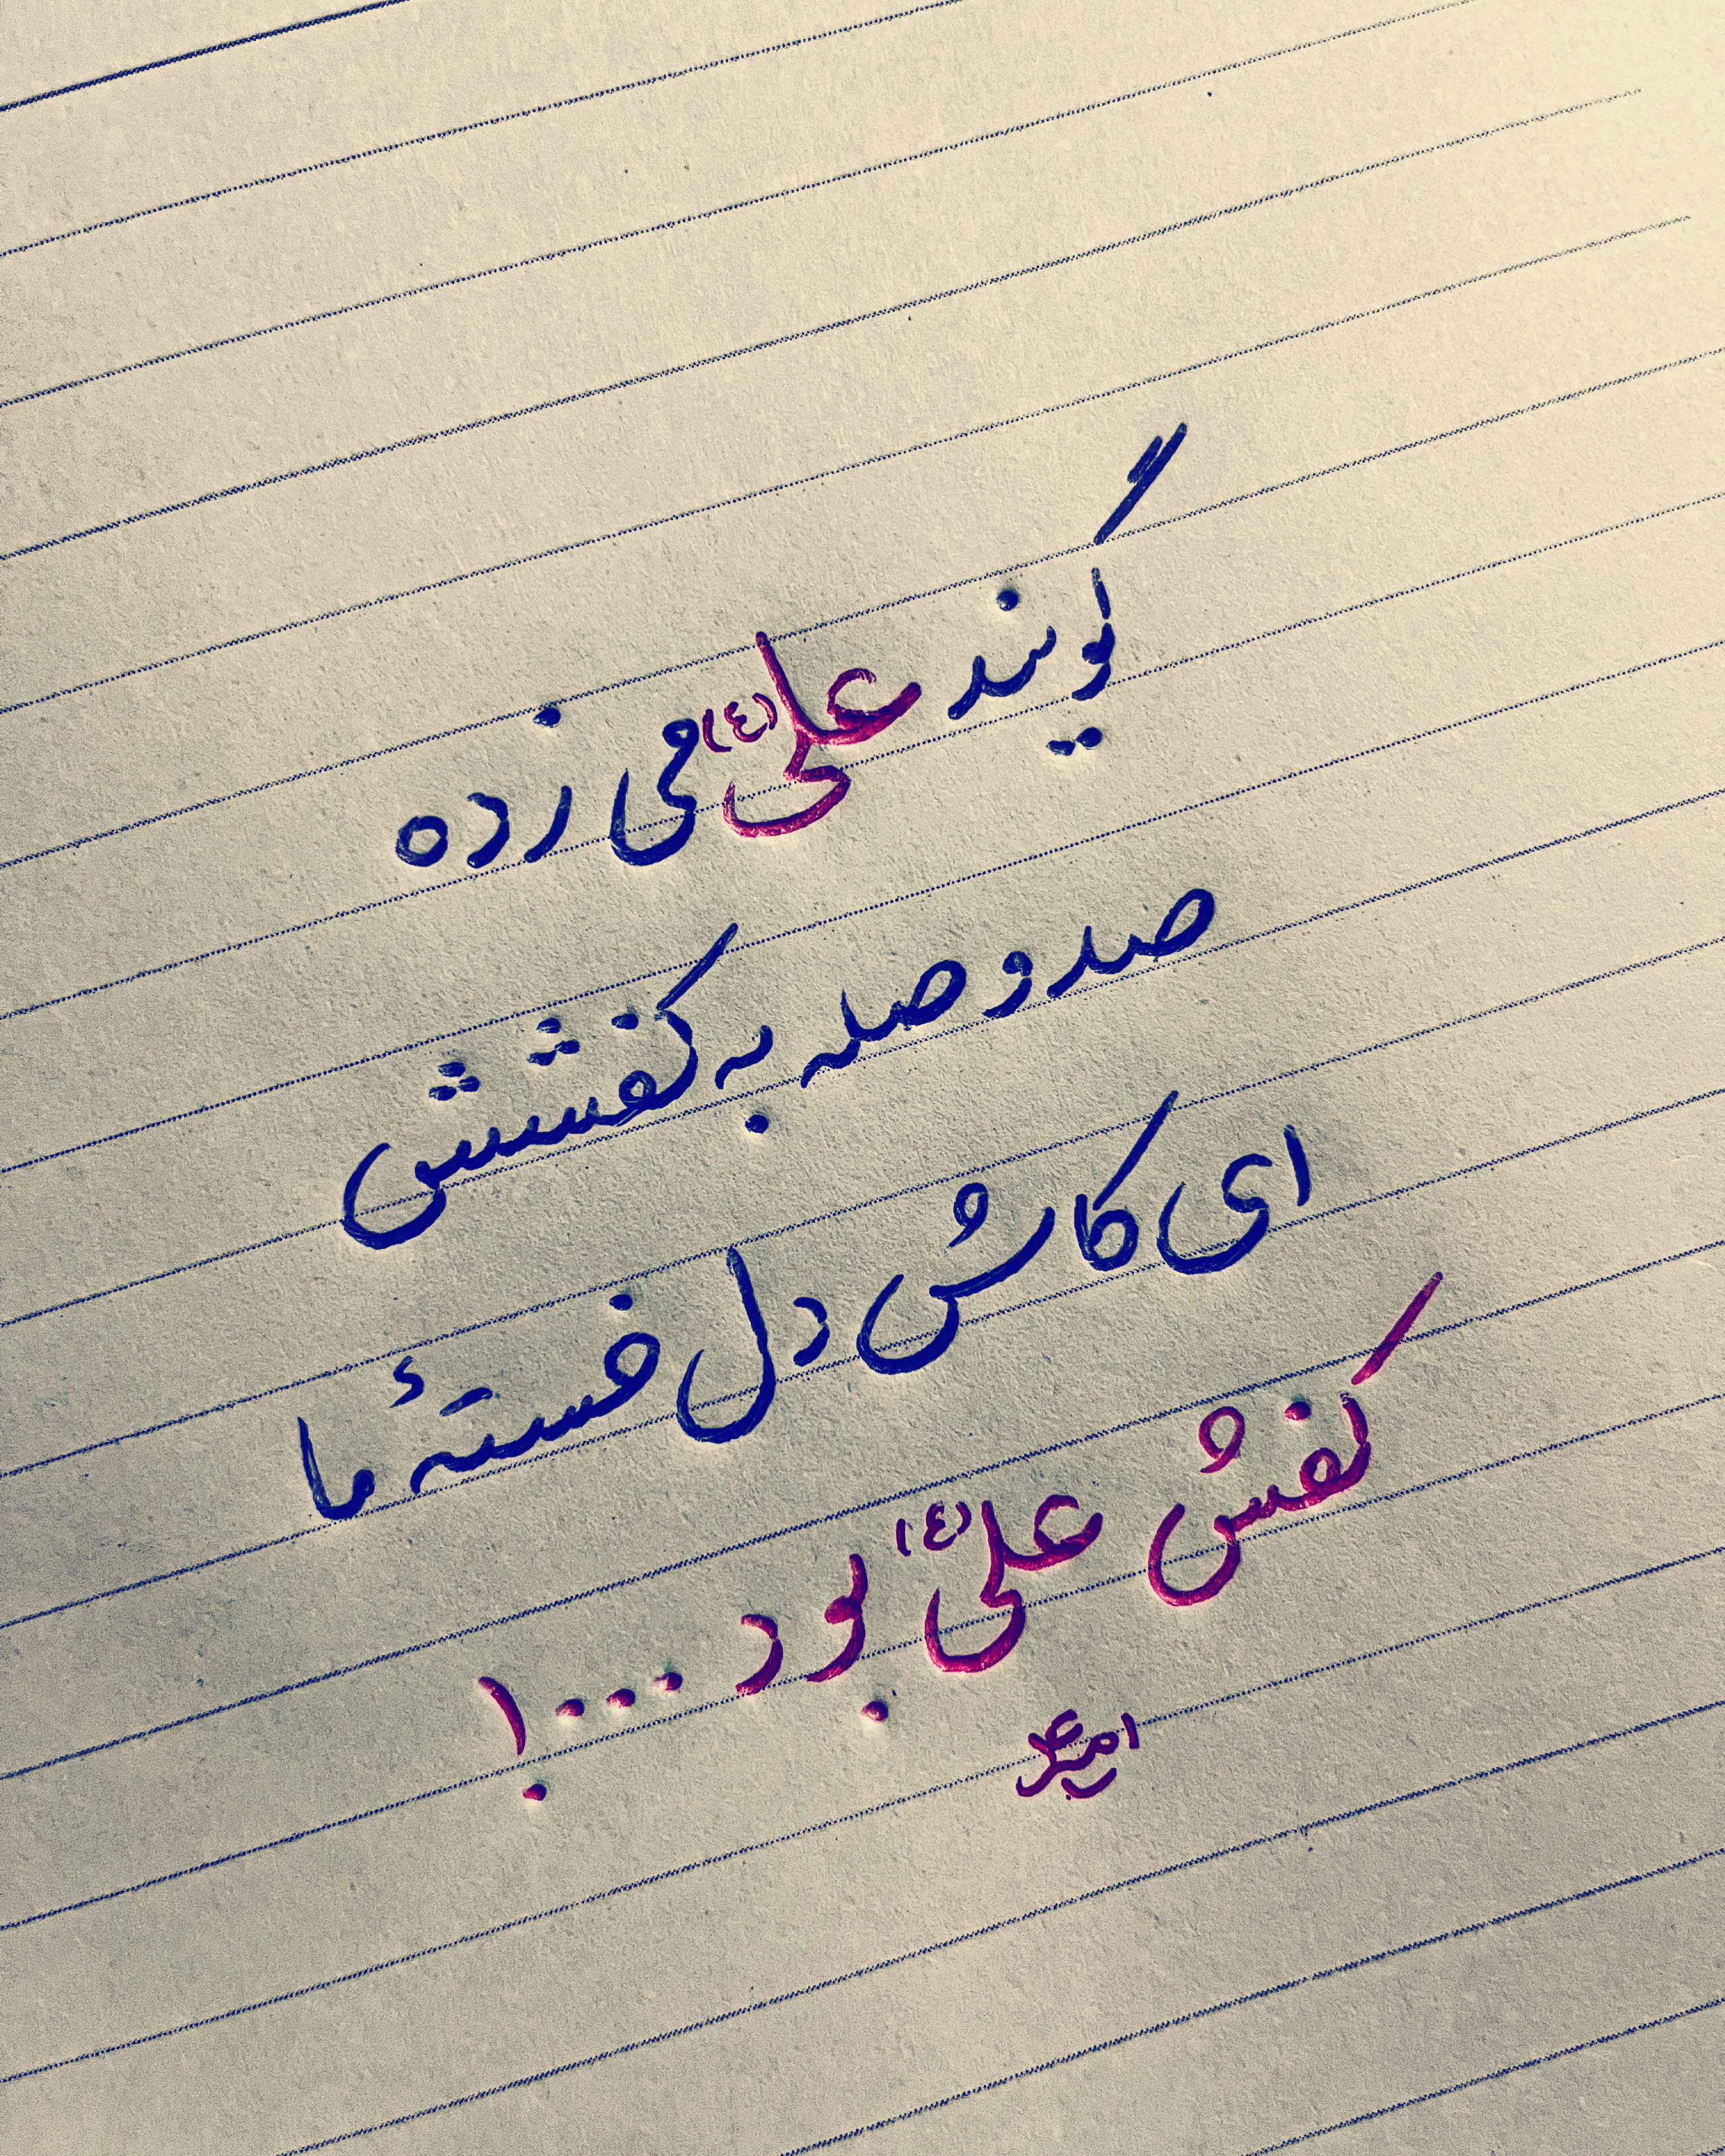 گویند علی (ع) می زده
صد وصله به کفشش
ای کاش دل خستهٔ ما
کفش علی (ع) بود ...!